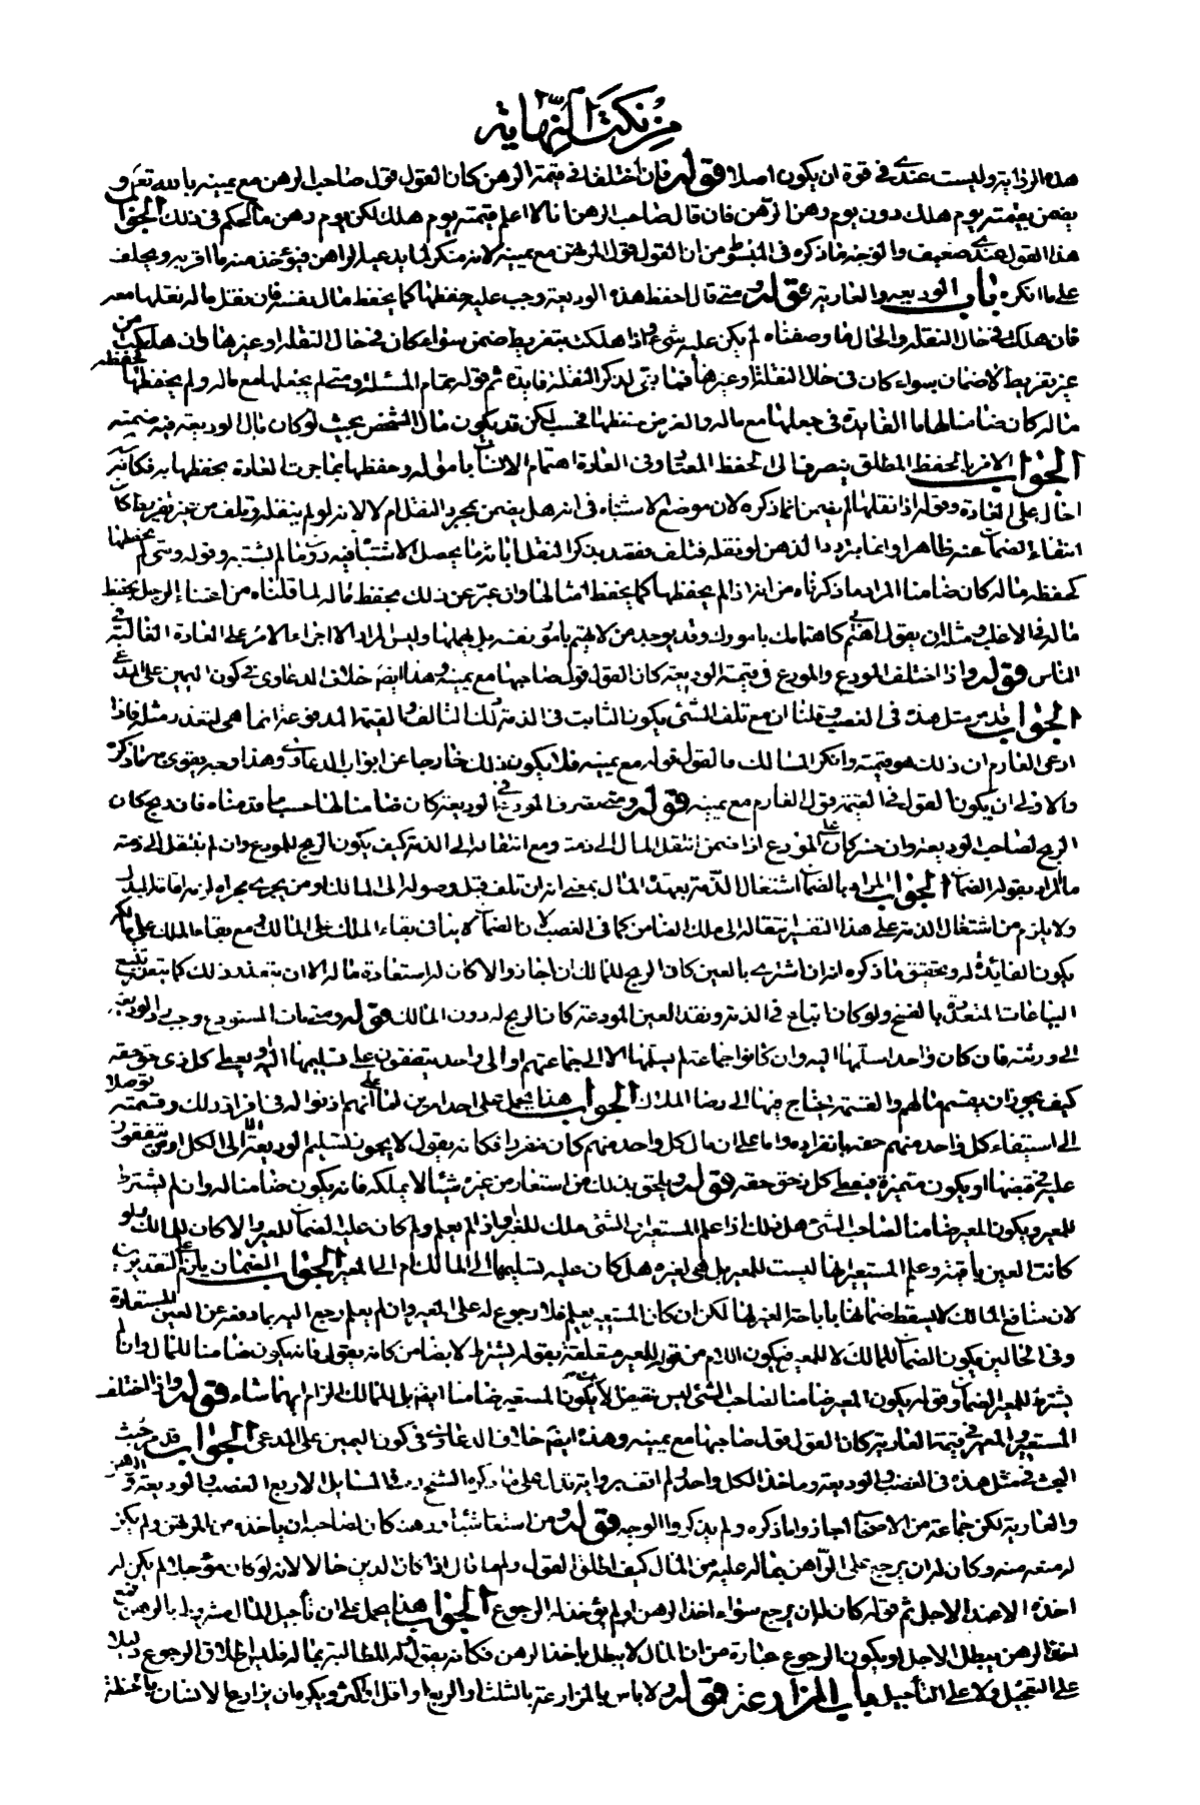 من نكت النهاية
هذه الرواية وليست عندي في قوة ان يكون اصلا قوله فان اختلفا في قيمة الرهن كان القول قول صاحب الرهن مع يمينه بالله تعالى و
يضمن بقيمته يوم هلك دون يوم رهن الرهن فان قال صاحب الرهن انا لا اعلم قيمته يوم هلك لكن يوم رهن ما الحكم في ذلك الجواب
هذا القول عندي ضعيف والوجه ما ذكره في المبسوط من ان القول قول المرتهن مع يمينه لانه منكر لما يدعيه الراهن فيؤخذ منه ما اقر به ويحلف
على ما انكره باب الوديعة والعارية قوله ومتى قال احفظ هذه الوديعة وجب عليه حفظها كما يحفظ مال نفسه فان نقل ماله نقلها معه
فان هلكت في حال النقلة والحال ما وصفناه لم يكن عليه شئ واذا هلكت بتفريط ضمن سواء كان في حال النقلة او غيرها وان هلكت من
غير تفريط لا ضمان سواء كان في حال النقلة او غيرها فما بقي لذكر النقلة فايدة ثم قوله بتمام المسئلة ومتى لم يجعلها مع ماله ولم يحفظها كحفظه
ماله كان ضامنا لها ما الفايدة في جعلها مع ماله والغرض حفظها فحسب لكن قد يكون مال الشخص بحيث لو كان مال الوديعة فيه ضيعته
الجواب الامر بالحفظ المطلق ينصرف الى الحفظ المعتاد وفي العادة اهتمام الانسان بامواله وحفظها بما جرت العادة بحفظها به فكانه
احال على العادة وقوله اذا نقلها لم يضمن انما ذكره لان موضع الاشتباه في انه هل يضمن بمجرد النقل ام لا لانه لو لم ينقله وتلف من غير تفريط كان
انتفاء الضمان عنه ظاهرا وانما يتردد الذهن لو نقله فتلف فقصد بذكر النقل اباثة ما يحصل الاشتباه فيه دون ما لم يشتبه وقوله ومتى لم يحفظها
كحفظه ماله كان ضامنا المراد ما ذكرناه من انه اذا لم يحفظها كما يحفظ امثالها وان عبر عن ذلك بحفظ ماله لما قلناه من اعتناء الرجل بحفظ
ماله في الاغلب ومثله ان يقول اهتم بي كاهتمامك بامورك وقد يوجد من لا يهتم بامور نفسه بل يهملها وليس المراد الا اجراء الامر على العادة الغالبة في
الناس قوله واذا اختلف المودع والمودع في قيمة الوديعة كان القول قول صاحبها مع يمينه وهذا ايضا خلاف الدعاوي في كون اليمين على المدعي
الجواب قد مر مثل هذه في الغصب وقلنا ان مع تلف الشئ يكون الثابت في الذمة ذلك التالف والقيمة المدفوعة انما هي لتعذر مثله فاذا
ادعى الغارم ان ذلك هو قيمته وانكر المالك فالقول قوله مع يمينه فلا يكون ذلك خارجا عن ابواب الدعاوي وهذا وجه يقوى به ما ذكره
والاولى ان يكون القول في القيمة قول الغارم مع يمينه قوله ومتى تصرف المودع في الوديعة كان ضامنا لها حسب ما قدمناه فان ربح كان
الربح لصاحب الوديعة وان خسر كان على المودع اذا ضمن انتقل المال الى ذمته ومع انتقاله الى الذمة كيف يكون الربح للمودع وان لم ينتقل الى ذمته
ما المراد بقوله الضمان الجواب المراد بالضمان اشتغال الذمة بعهدة المال بمعنى انه ان تلف قبل وصوله الى المالك او من يجري مجراه لزمه اقامة البدل
ولا يلزم من اشتغال الذمة على هذا التفسير انتقاله الى ملك الضامن كما في الغصب لان الضمان لا ينافي بقاء الملك على المالك ومع بقاء الملك على مالكه
يكون الفايدة له وتحقيق ما ذكره انه ان اشترى بالعين كان الربح للمالك ان اجاز والا كان له استعادة ماله الا ان يتعذر ذلك كما يتعذر تتبع
البياعات المتعددة بالفسخ ولو كان ابتاع في الذمة ونقد العين المودعة كان الربح له دون المالك قوله ومتى مات المستودع وجب رد الوديعة
الى ورثته فان كان واحدا سلمها اليه وان كانوا جماعة لم يسلمها الا الى جماعتهم او الى واحد يتفقون على تسليمها اليه ويعطى كل ذي حق حقه
كيف يجوز ان يقسم مالهم والقسمة يحتاج فيها الى رضا الملاك الجواب هذا يحمل على احد امرين اما على انهم اذنوا له في افراز ذلك وقسمته توصلا
الى استيفاء كل واحد منهم حقه بانفراده واما على ان مال كل واحد منهم كان منفردا فكانه يقول لا يجوز تسليم الوديعة الا الى الكل او من يتفقون
عليه في قبضها او يكون متميزة فيعطى كل ذي حق حقه قوله ويلحق بذلك من استعار من غيره شيئا لا يملكه فانه يكون ضامنا له وان لم يشترط
المعير ويكون المعير ضامنا لصاحب الشئ هل ذلك اذا علم المستعير ان الشئ ملك للغير او اذا لم يعلم ولم كان عليه الضمان للمعير والا كان للمالك ولو
كانت العين باقية وعلم المستعير انها ليست للمعير بل هي لغيره هل كان عليه تسليمها الى المالك ام الى المعير الجواب الضمان يلزم على التقديرين
لان منافع المالك لا يسقط ضمانها باباحة الغير لها لكن ان كان المستعير يعلم فلا رجوع له على المعير وان لم يعلم رجع اليه بما دفعه عن العين المستعارة
وفي الحالين يكون الضمان للمالك لا للمعير فيكون اللام من قوله للمعير متعلقة بقوله يشترط لا بضامن كانه يقول فانه يكون ضامنا للمال وان لم
يشترط للمعير الضمان وقوله يكون المعير ضامنا لصاحب الشئ ليس نقيضا لان يكون المستعير ضامنا ايضا بل للمالك الزام ايهما شاء قوله واذا اختلف
المستعير والمعير في قيمة العارية كان القول قول صاحبها مع يمينه وهذه ايضا خلاف الدعاوي في كون اليمين على المدعي الجواب قد مر بحث
البحث في مثل هذه في الغصب والوديعة وماخذ الكل واحد ولم اقف برواية تدل على ما ذكره الشيخ في المسايل الاربع الغصب والوديعة والرهن
والعارية لكن جماعة من الاصحاب اجازوا ما ذكره ولم يذكروا الوجه قوله ومن استعار شيئا ورهنه كان لصاحبه ان ياخذه من المرتهن ولم يكن
له منعه منه وكان له ان يرجع على الراهن بماله عليه من المال كيف اطلق القول ولم ما قال اذا كان الدين حالا لانه لو كان مؤجلا لم يكن له
اخذه الا عند الاجل ثم قوله كان له ان يرجع سواء اخذ الرهن او لم يؤخذ له الرجوع الجواب هذا يحمل على ان تأجيل المال مشروط بالرهن فمع
اخذ الرهن يبطل الاجل او يكون الرجوع عبارة من ان المال لا يبطل باخذ الرهن فكانه يقول له المطالبة بماله فليس اطلاق الرجوع دليلا
على التعجيل ولا على التأجيل باب المزارعة قوله ولا باس بالمزارعة بالثلث او الربع او اقل او اكثر ويكره ان يزارع الانسان بالحنطة